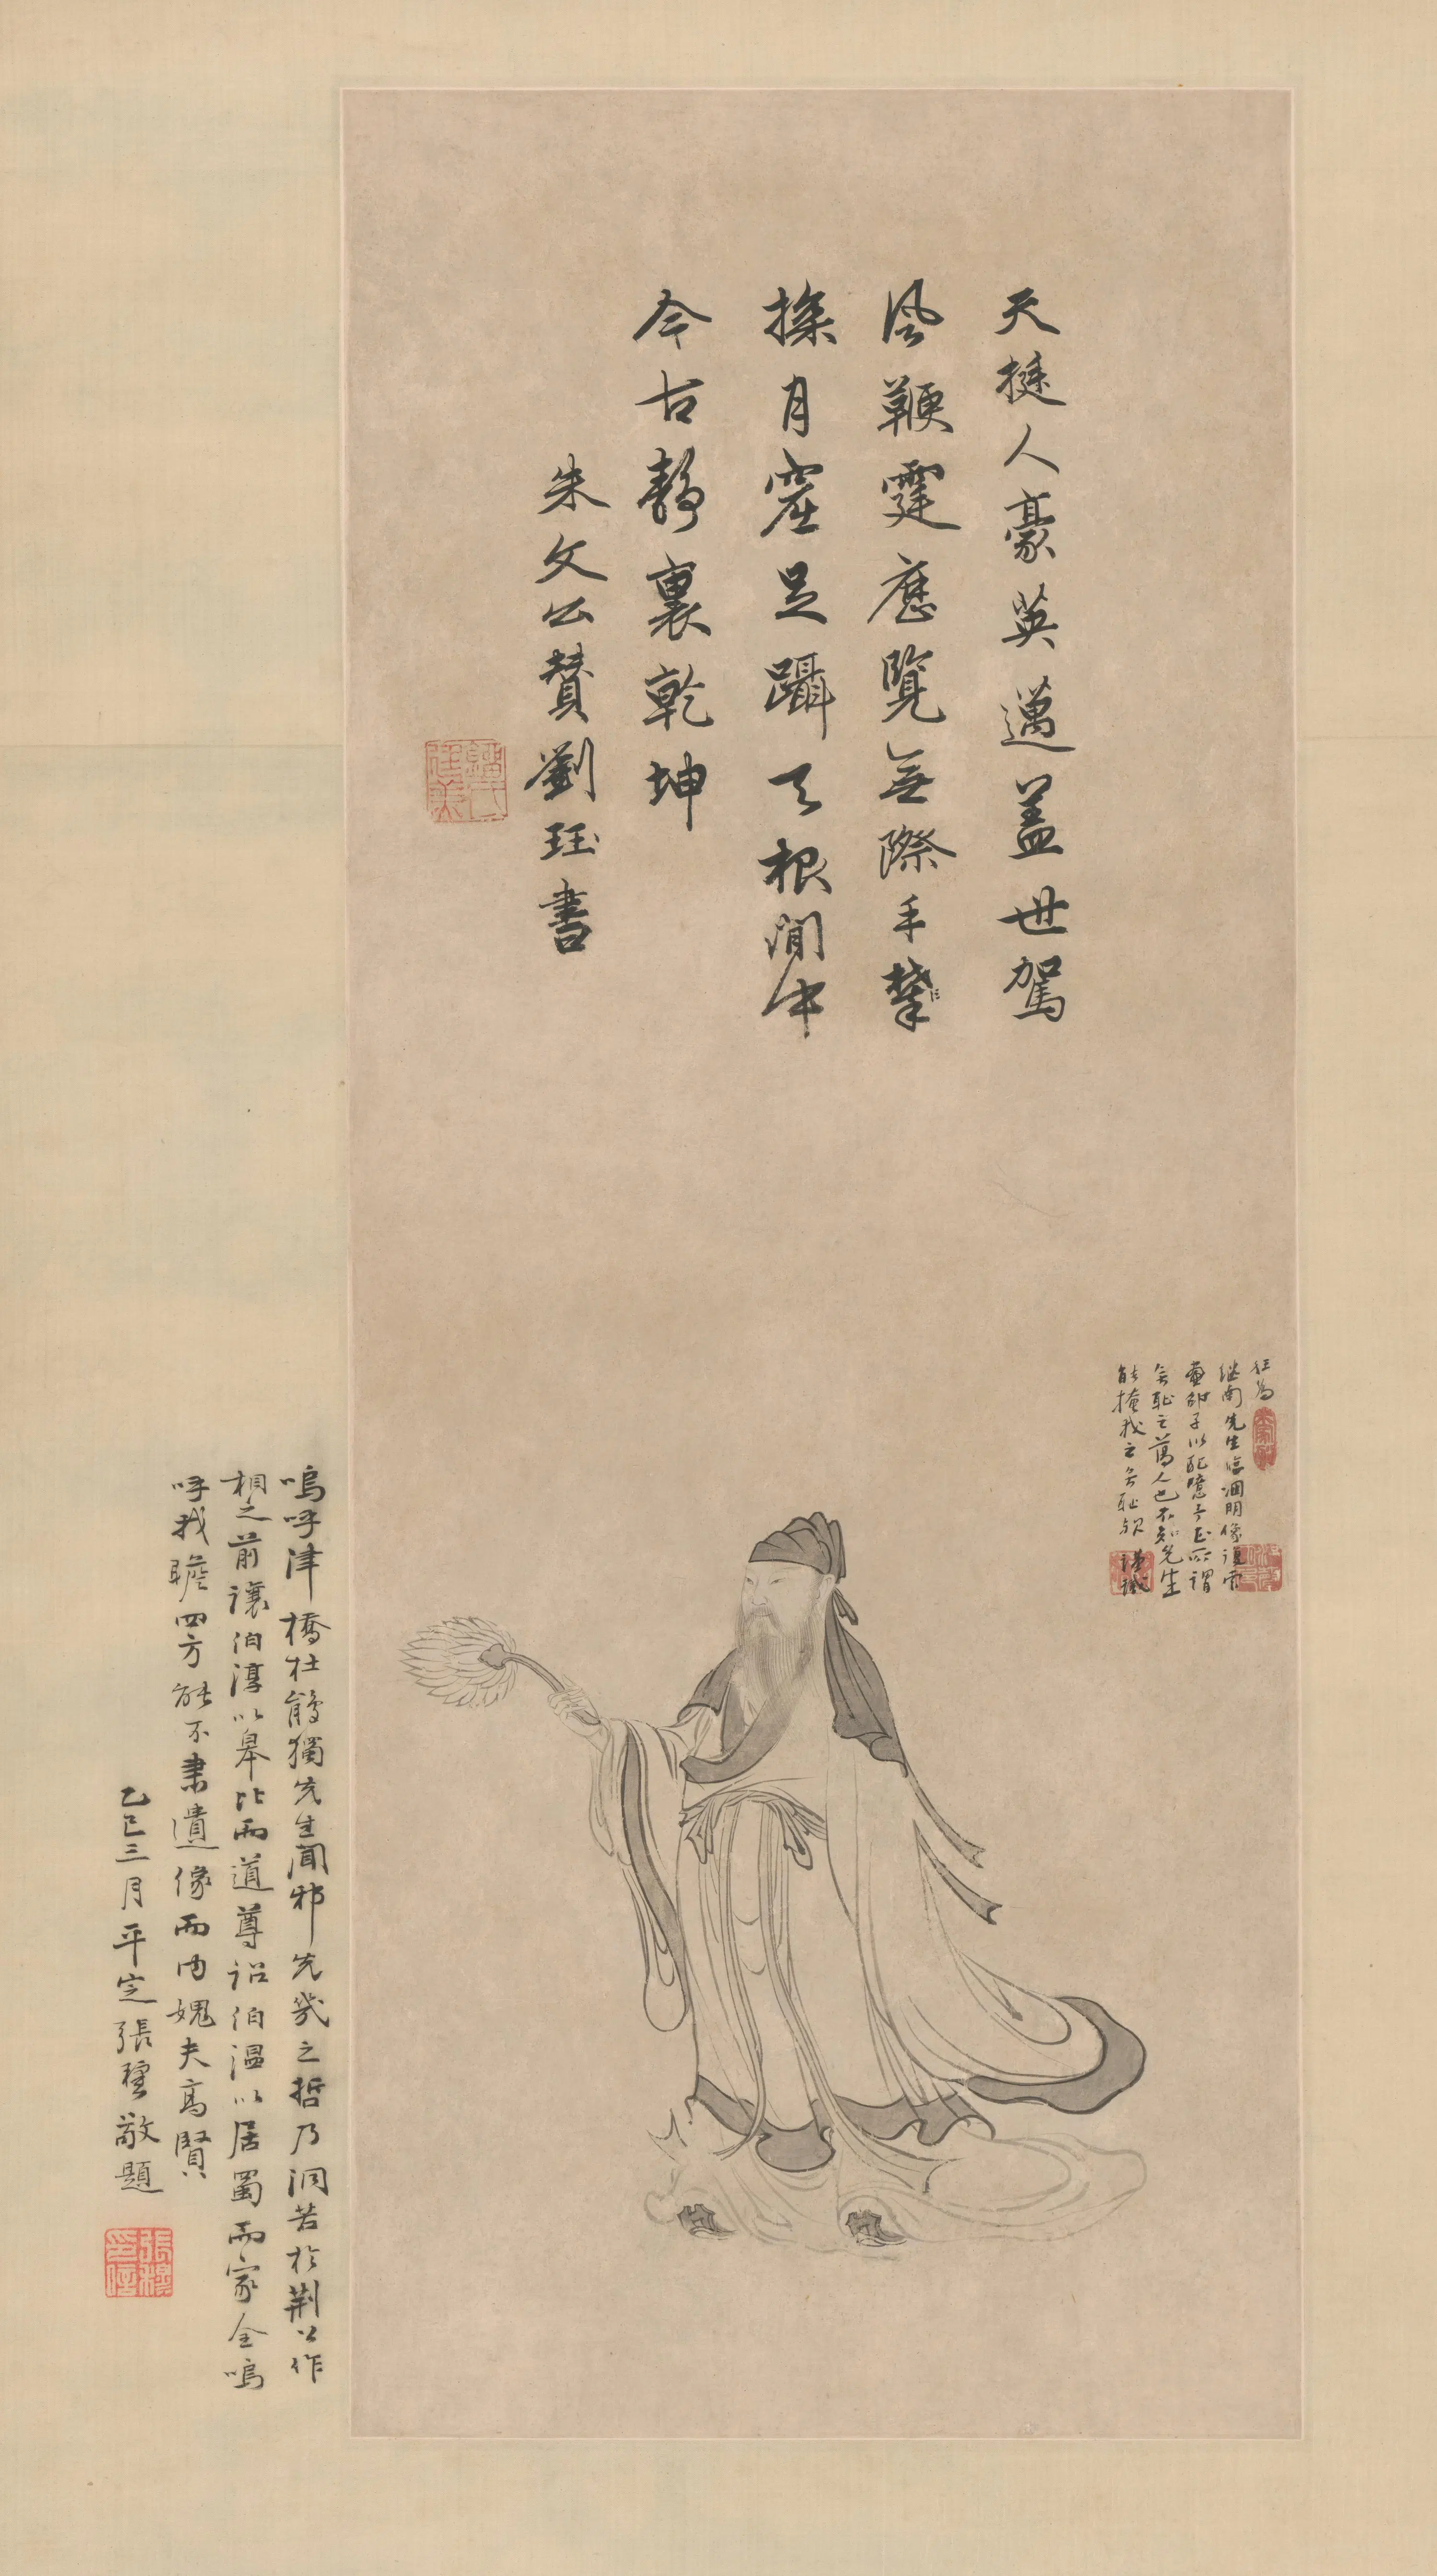 天挺人豪英邁蓋世駕
風鞭霆歷覽無際手
探月窟足躡天根閒中
今古靜裏乾坤
朱文公贊劉珏書
往為
繼南先生臨淵明像復索
畫邵子以配噫予正所謂
無恥之萬人也不知先生
能掩我之無恥
謹識
嗚呼津橋杜鵑獨先生聞邪先幾之哲乃洞若於荆公作
相之前讓伯淳以皋比而道尊詔伯溫以居蜀而家全嗚
呼我瞻四方能不肅遺像而內媿夫高賢
乙巳三月平定張穆敬題
張穆印信